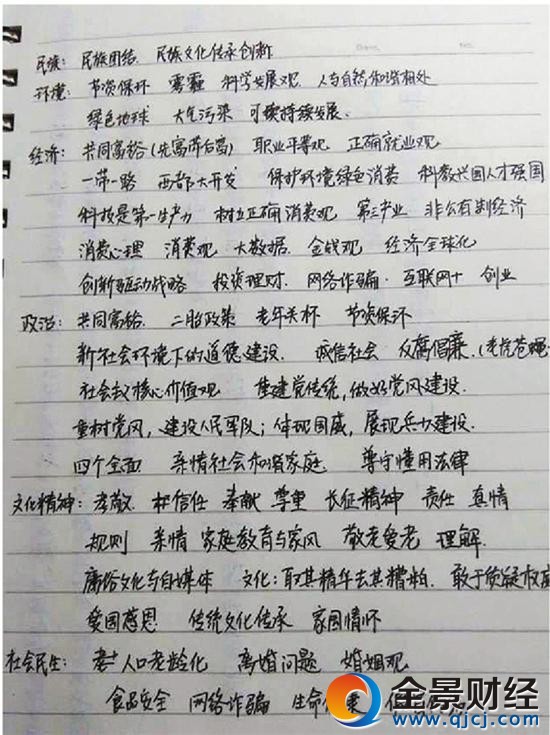 民族: 民族团结、民族文化传承创新
环境: 节资保环 雾霾 科学发展观 人与自然和谐相处
绿色地球 大气污染 可续持续发展.
经济: 共同富裕(先富带后富) 职业平等观 正确就业观
一带一路 西部大开发 保护环境绿色消费 科教兴国人才强国
科技是第一生产力 树立正确消费观 第三产业 非公有制经济
消费心理 消费观 大数据. 金钱观 经济全球化
创新驱动战略 投资理财. 网络诈骗. 互联网+ 创业
政治: 共同富裕. 二胎政策 老年关怀 节资保环
新社会环境下的道德建设. 诚信社会 反腐倡廉.(老虎苍蝇
社会主义核心价值观 重建党传统,做好党风建设.
重树党风,建设人民军队;体现国威,展现兵力建设.
四个全面 亲情社会和谐家庭 尊守懂用法律
文化精神: 孝敬. 信任 奉献 尊重 长征精神 责任 真情
规则 亲情 家庭教育与家风 敬老爱老 理解.
庸俗文化与自媒体 文化:取其精华去其糟粕. 敢于质疑权
爱国感恩 传统文化传承 家国情怀
社会民生: 人口老龄化 离婚问题 婚姻观
食品安全 网络诈骗 生命
金景财经
www.qjcj.com